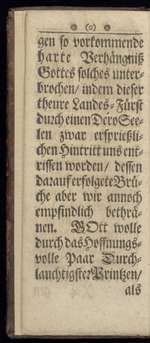 (o)
gen so vorkommende
harte Verhängniß
Gottes solches unter-
brochen/ indem dieser
theure Landes-Fürst
durch einen Dero See-
len zwar ersprießli-
chen Hintritt uns ent-
rissen worden/ dessen
darauf erfolgete Brü-
che aber wir annoch
empfindlich bethrä-
nen. GOtt wolle
durch das Hoffnungs-
volle Paar Durch-
lauchtigster Printzen/
als